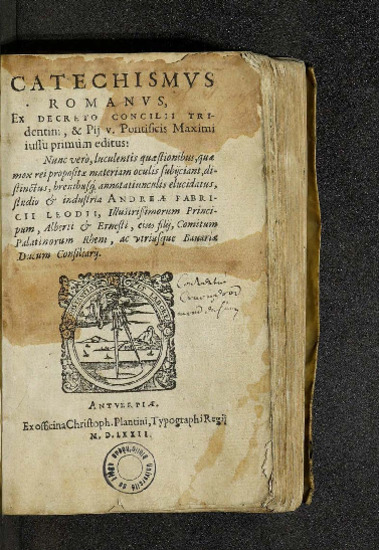 CATECHISMVS
ROMANVS,
EX DECRETO CONCILII TRI
dentini, & Pij v. Pontificis Maximi
iussu primùm editus:
Nunc verò, luculentis quæstionibus, quæ
mox rei propositæ materiam oculis subijciant, di-
stinctus, breuibusq; annotatiunculis elucidatus,
studio & industria ANDREÆ FABRI-
CII LEODII, Illustrissimorum Princi-
pum, Alberti & Ernesti, eius filij, Comitum
Palatinorum Rheni, ac vtriusque Bauariæ
Ducum Consiliarij.
ANTVERPIÆ,
Ex officina Christoph. Plantini, Typographi Regij
M. D. LXXII.